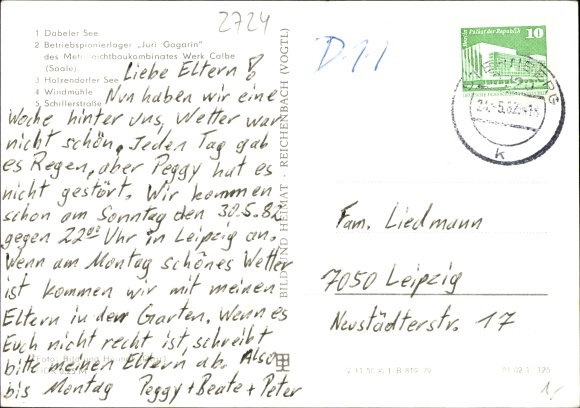 2724
1 Dabeler See
2 Betriebspionierlager "Juri Gagarin"
des Metalleichtbaukombinates Werk Calbe
(Saale)
3 Holzendorfer See
4 Windmühle
5 Schillerstraße
Liebe Eltern!
Nun haben wir eine
Woche hinter uns, Wetter war
nicht schön. Jeden Tag gab
es Regen, aber Peggy hat es
nicht gestört. Wir kommen
schon am Sonntag den 30.5.82
gegen 22⁰⁰ Uhr in Leipzig an.
Wenn am Montag schönes Wetter
ist kommen wir mit meinen
Eltern in den Garten. Wenn es
Euch nicht recht ist, schreibt
bitte meinen Eltern ab. Also
bis Montag Peggy + Beate + Peter
BILD UND HEIMAT · REICHENBACH (VOGTL)
10
Palast der Republik
k
Fam. Liedmann
7050 Leipzig
Neustädterstr. 17
01 02 1 125